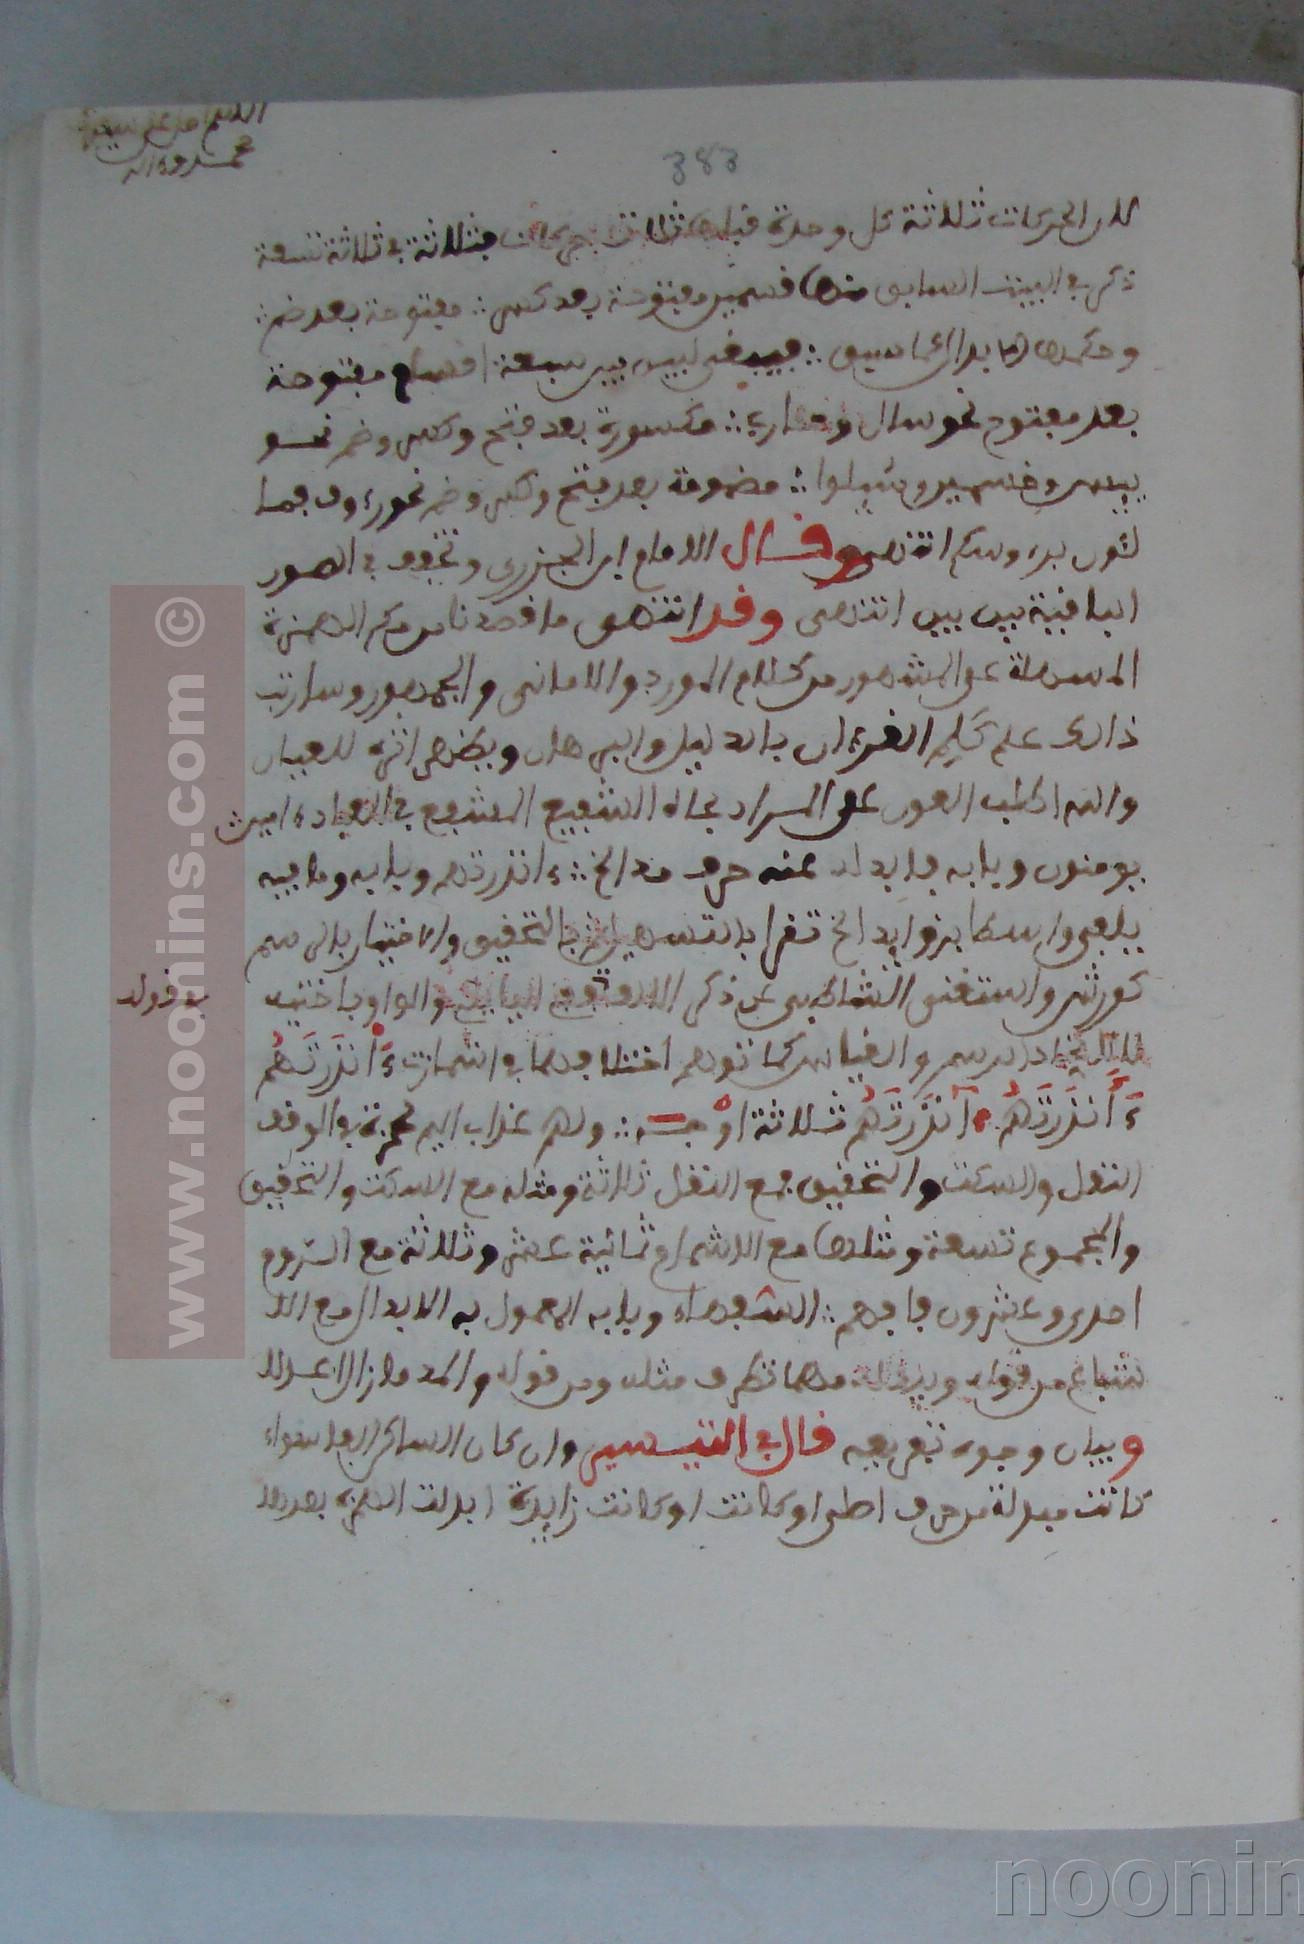 اللهم صل على سيدنا
محمد وءاله
383
لان الحركات ثلاثة كل وحدة قبلها ثلاث حركات فثلاثة في ثلاثة تسعة
ذكر في البيت السابق منها قسمين مفتوحة بعد كسر ∴ مفتوحة بعد ضم ∴
و حكمها الابدال كما سبق ∴ فيبقى لبين بين سبعة اقسام مفتوحة
بعد مفتوح نحو سال و ∴ مكسورة بعد فتح وكسر وضم نحو
بييس وخسيين وسيلوا ∴ مضمومة بعد فتح وكسر وضم نحو رءوف فما
لئون برءوسكم انتهى وقال الامام ابن الجزري وتخفف في الصور
الباقية بين بين انتهى وقد انتهى ما قصدنا من حكم الهمزة
المسهلة على المشهور من كلام المورد والاماني والجمهور وسارتب
ذالك على كلم القرءان بالدليل والبرهان ويظهر اثره للعيان
والله اطلب العون على المراد بجاه الشفيع المشفع في العباد ءامين
يومنون وبابه فابدله عنه حرف مد الخ ∴ ءانذرتهم وبابه وما فيه
يلفى واسطا بزوايد الخ تقرا بالتسهيل ثم بالتحقيق والاختيار بالرسم
كورش واستغنى الشاطبي عن ذكر الالف مع الياء والواو باختيه
والقياس كما توهم اختلافهما في ائمارت ءَأنذَرتَهُم
ءَأَنذَرتَهُم ءآنذَرتَهُم ثلاثة اوجه ∴ ولهم عذاب اليم لحمزة في الوقف
النقل والسكت والتحقيق فمع النقل ثلاثة ومثله مع السكت والتحقيق
والمجموع تسعة ومثلها مع الاشمام ثمانية عشر وثلاثة مع الروم
احدى وعشرون فافهم ∴ السفهاء وبابه المعمول به الابدال مع الا
شباع من قوله ويبدله مهما تطرف مثله ومن قوله والمد ما زال اعدلا
وبيان وجوه تفريعه قال في التيسير وان كان الساكن الفا سواء
كانت مبدلة من حرف اصلي او كانت زايدة ابدلت الهمزة بعدها
من قوله
www.noonins.com ©
noonin